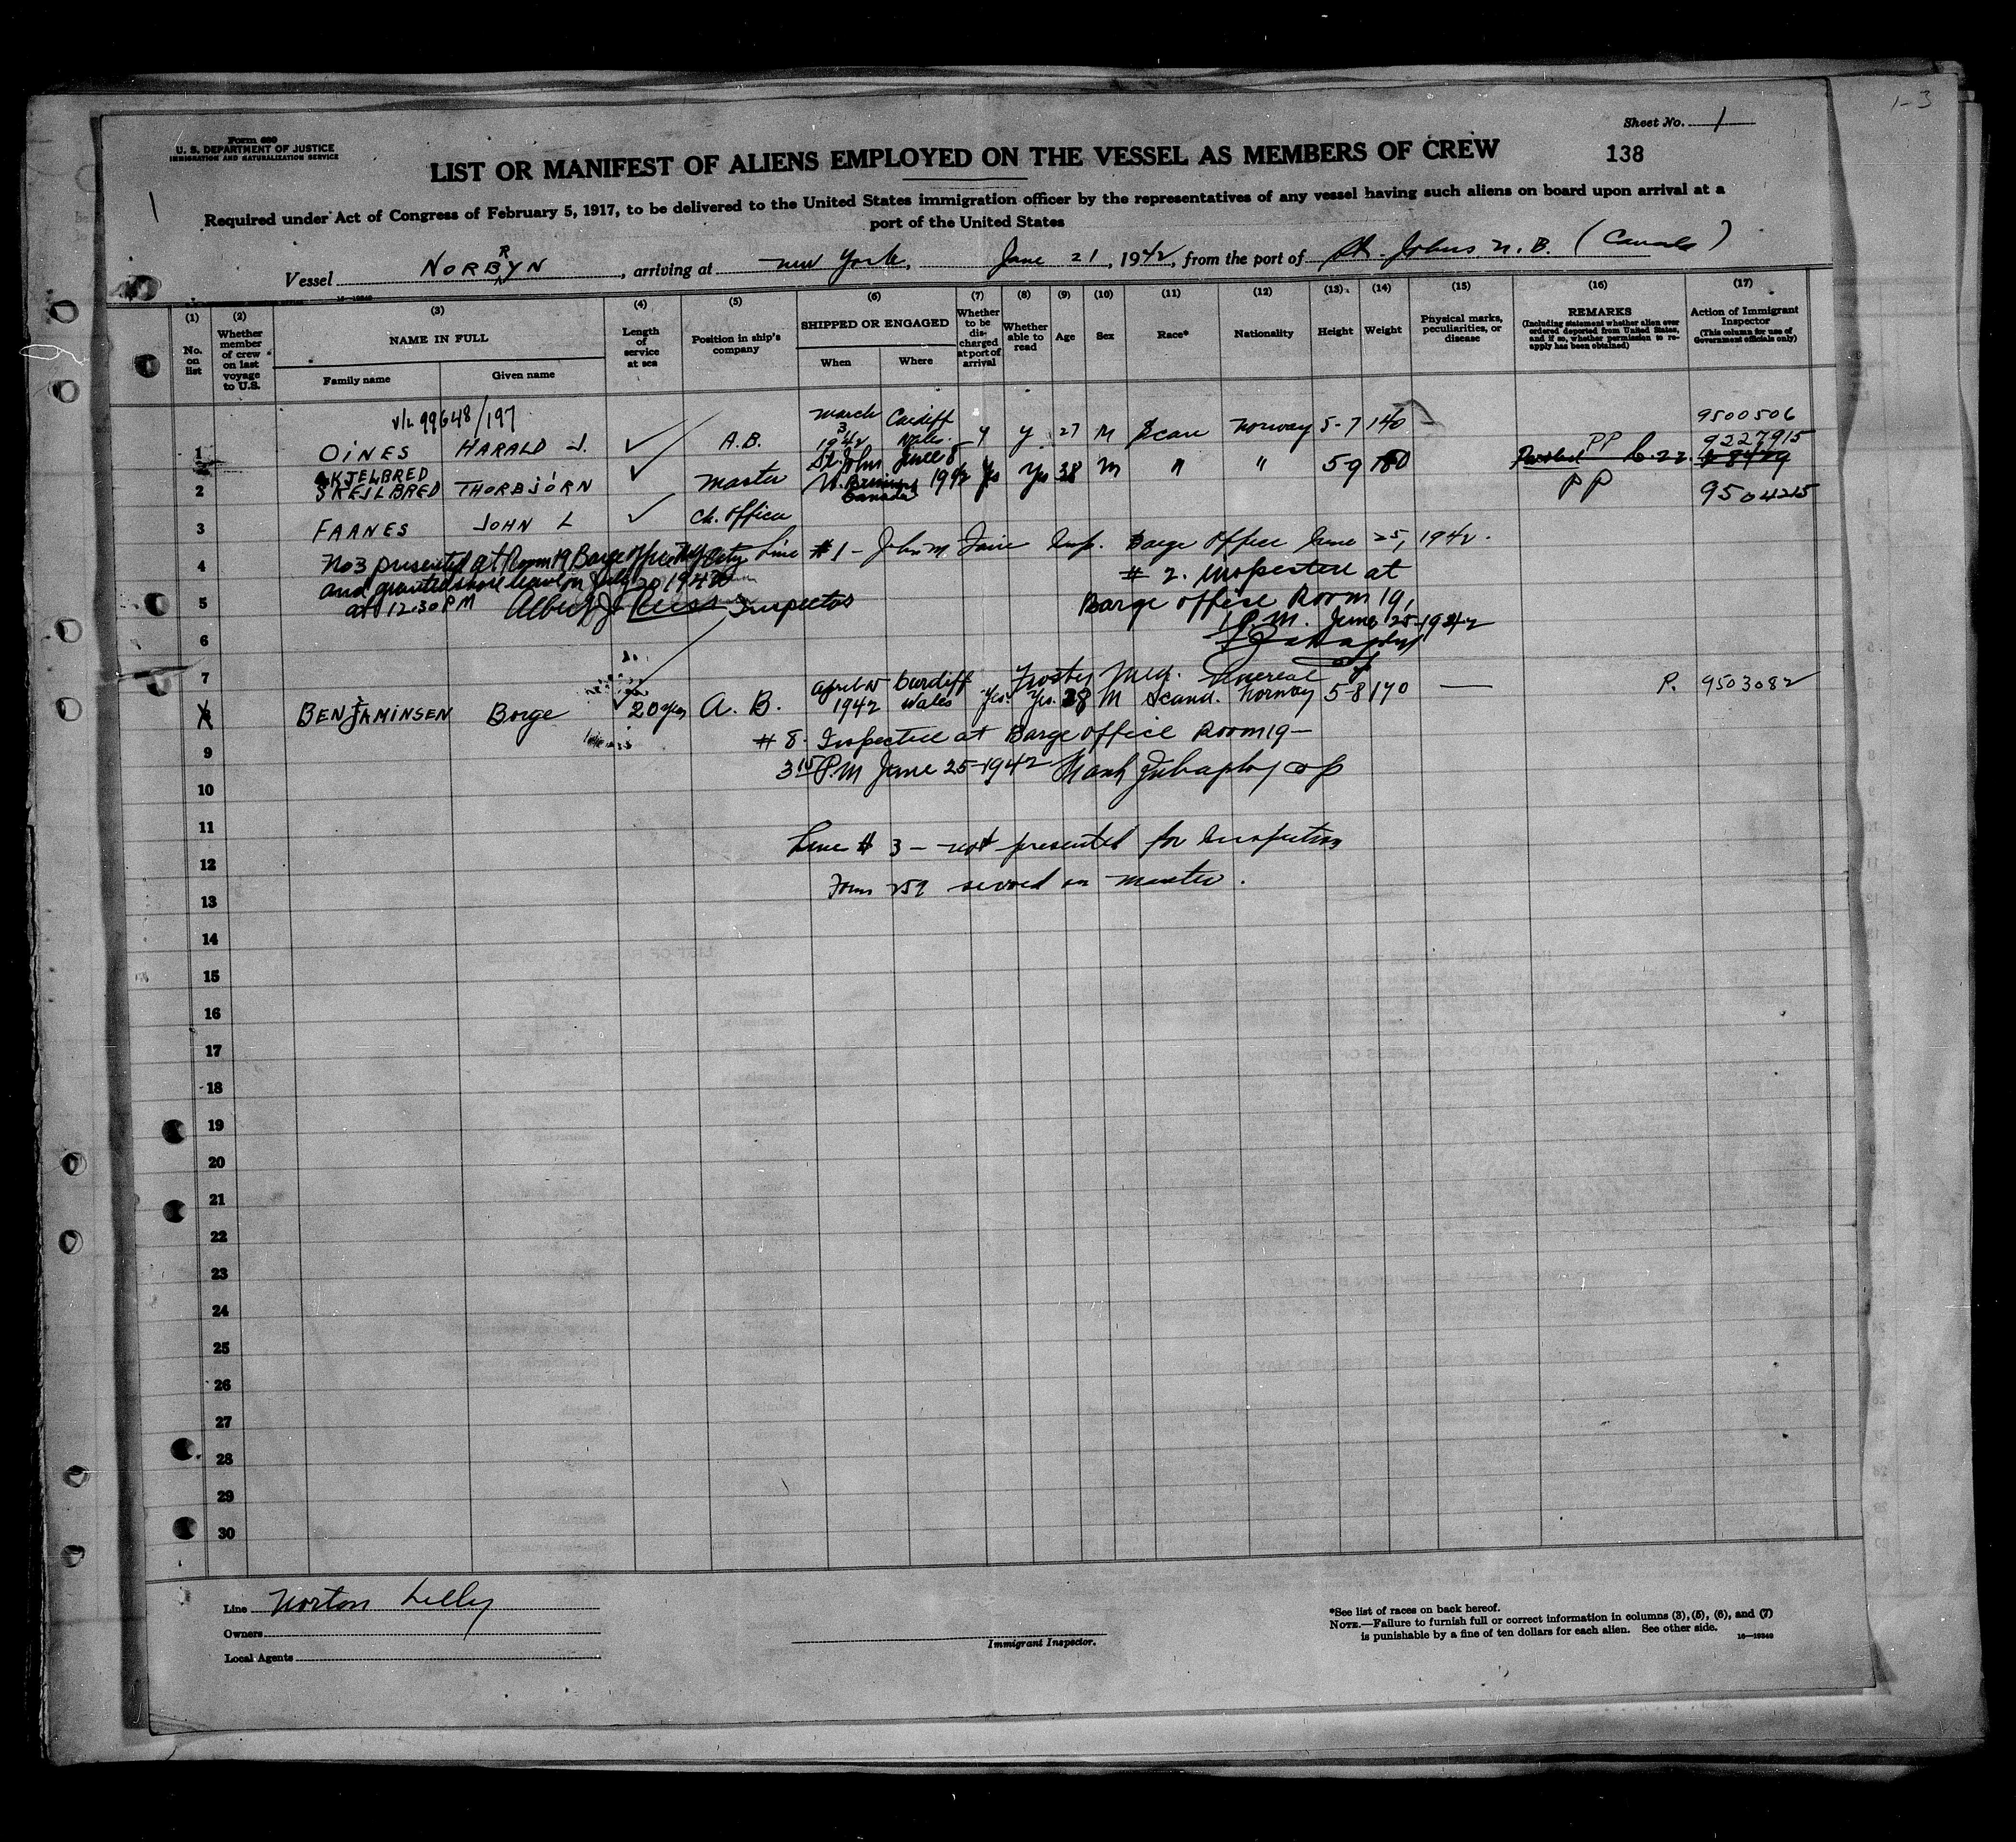 1-3
Sheet No. 1
Form 680
U. S. DEPARTMENT OF JUSTICE
IMMIGRATION AND NATURALIZATION SERVICE
LIST OR MANIFEST OF ALIENS EMPLOYED ON THE VESSEL AS MEMBERS OF CREW
138
1
Required under Act of Congress of February 5, 1917, to be delivered to the United States immigration officer by the representatives of any vessel having such aliens on board upon arrival at a
port of the United States
Vessel NORBRYN, arriving at New York, June 21, 1942, from the port of St. Johns N.B. (Canada)
(1) (2) (3) (4) (5) (6) (7) (8) (9) (10) (11) (12) (13) (14) (15) (16) (17)
No. on list
Whether member of crew on last voyage to U.S.
NAME IN FULL
Family name
Given name
Length of service at sea
Position in ship's company
SHIPPED OR ENGAGED
When
Where
Whether to be discharged at port of arrival
Whether able to read
Age
Sex
Race*
Nationality
Height
Weight
Physical marks, peculiarities, or disease
REMARKS
(Including statement whether alien ever ordered deported from United States, and if so, whether permission to reapply has been obtained)
Action of Immigrant Inspector
(This column for use of Government officials only)
V/L 99648/197
1 OINES HARALD J. ✓ A.B. March 3 1942 Cardiff Wales. y y 27 M Scan Norway 5-7 140 PP 9500506
9227915
2 SKJELBRED SKEILBRED THORBJÓRN ✓ Master St. John N. Brunswick Canada June 8 1942 Yes Yes 38 M " " 5 9 180 PP 9504215
3 FAANES JOHN L ✓ Ch. Officer
No 3 presented at Room 19 Barge Office
and granted shore leave on July 20 1942
at 12.30 PM Albert J. Inspector
Line #1 - John M Insp. Barge Office June 25, 1942.
4
# 2. Inspected at
5
Barge Office Room 19,
1 P.M. June 25-1942
6
7
8 BENJAMINSEN Borge 20 yrs A. B. April 15 1942 Cardiff Wales Yes. Yes. 28 M Scand. Norway 5-8 170 — P. 9503082
# 8. Inspected at Barge Office Room 19 —
9
3 15 P.M June 25-1942
10
11
Line # 3 - not presented for Inspection
12
Form 259 served on Master.
13
14
15
16
17
18
19
20
21
22
23
24
25
26
27
28
29
30
Line Norton Lilly
Owners
Local Agents
Immigrant Inspector.
*See list of races on back hereof.
NOTE.—Failure to furnish full or correct information in columns (3), (5), (6), and (7)
is punishable by a fine of ten dollars for each alien. See other side. 16—19240